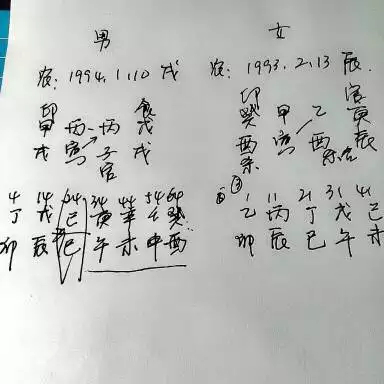 男
农: 1994.1.10 戌
印 食
甲 丙 丙 戊
戌 寅 子 戌
官
4 14 24 34 44 54 64
丁 戊 己 庚 辛 壬 癸
卯 辰 巳 午 未 申 酉
女
农: 1993.2.13 辰
印 官
癸 甲 乙 庚
酉 寅 酉 辰
杀
③
1 11 21 31 41
乙 丙 丁 戊 己
卯 辰 巳 午 未